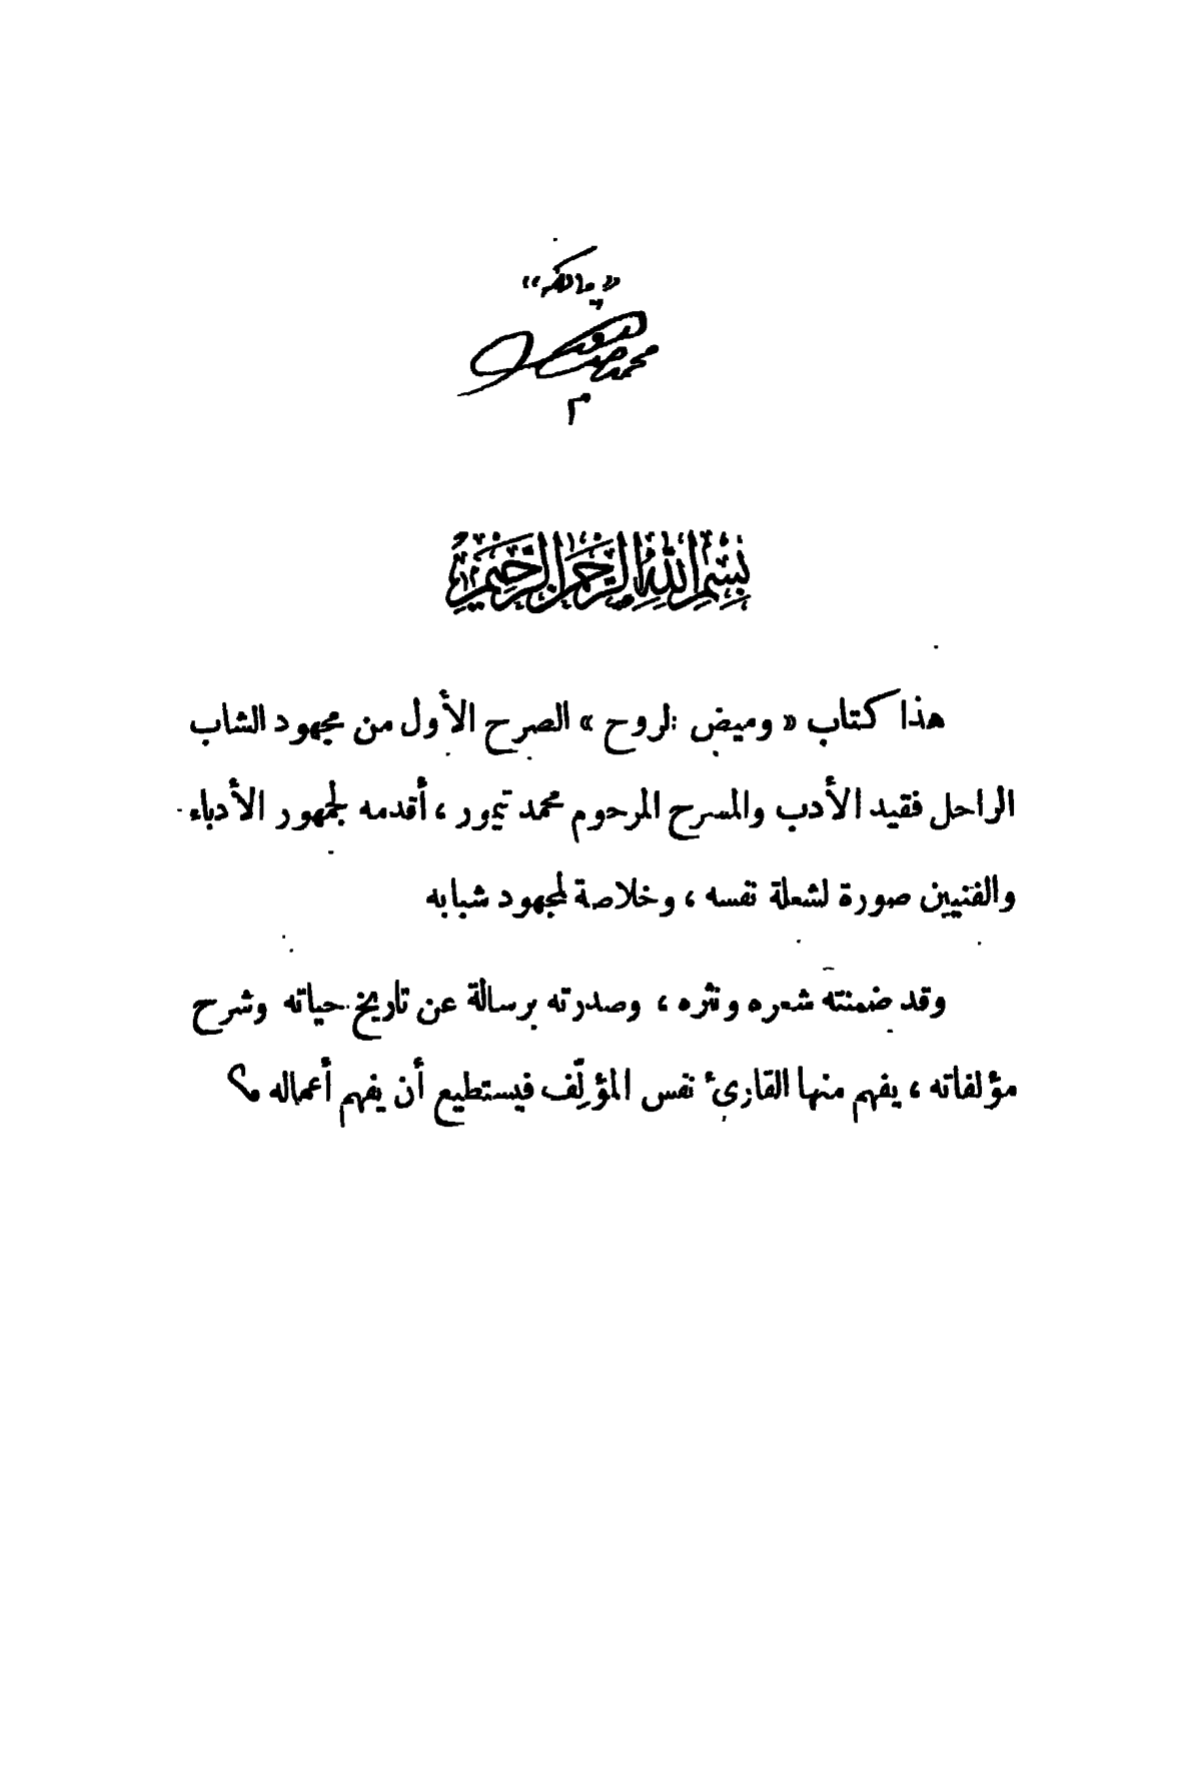 محمد
بسم الله الرحمن الرحيم
هذا كتاب « وميض الروح » الصرح الأول من مجهود الشاب
الراحل فقيد الأدب والمسرح المرحوم محمد تيمور ، أقدمه لجمهور الأدباء
والفنيين صورة لشعلة نفسه ، وخلاصة لمجهود شبابه
وقد ضمنته شعره ونثره ، وصدرته برسالة عن تاريخ حياته وشرح
مؤلفاته ، يفهم منها القارئ نفس المؤلِّف فيستطيع أن يفهم أعماله